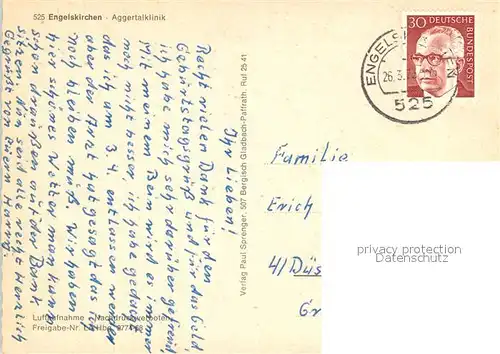 525 Engelskirchen - Aggertalklinik
Ihr Lieben!
Recht vielen Dank für den
Geburtstagsgruß und für das Geld,
ich habe mich sehr darüber gefreut,
Mit meinem Bein wird es immer
noch nicht besser, ich habe gedacht
das ich am 3.4. entlassen werde
aber der Arzt hat gesagt das ich
noch bleiben muß. Wir haben
hier schönes Wetter man kann
schon draußen auf der Bank
sitzen. Nun seid alle recht herzlich
Gegrüßt von Euern Harry.
Luftaufnahme - Nachdruck verboten
Freigabe-Nr.
Verlag Paul Sprenger, 507 Bergisch Gladbach-Paffrath, Ruf 25 41
30 DEUTSCHE BUNDESPOST
ENGELSKIRCHEN
26.3.
525
Familie
Erich
4/Düs
privacy protection
Datenschutz
www.ansichtskarten-lexikon.de